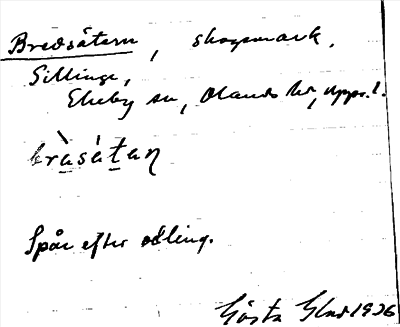 Bredsätern, skogsmark,
Sillinge,
Ekeby sn, Olands hd, Upps.l.
bràsátaɳ
Spår efter odling.
Gösta Glad 1926